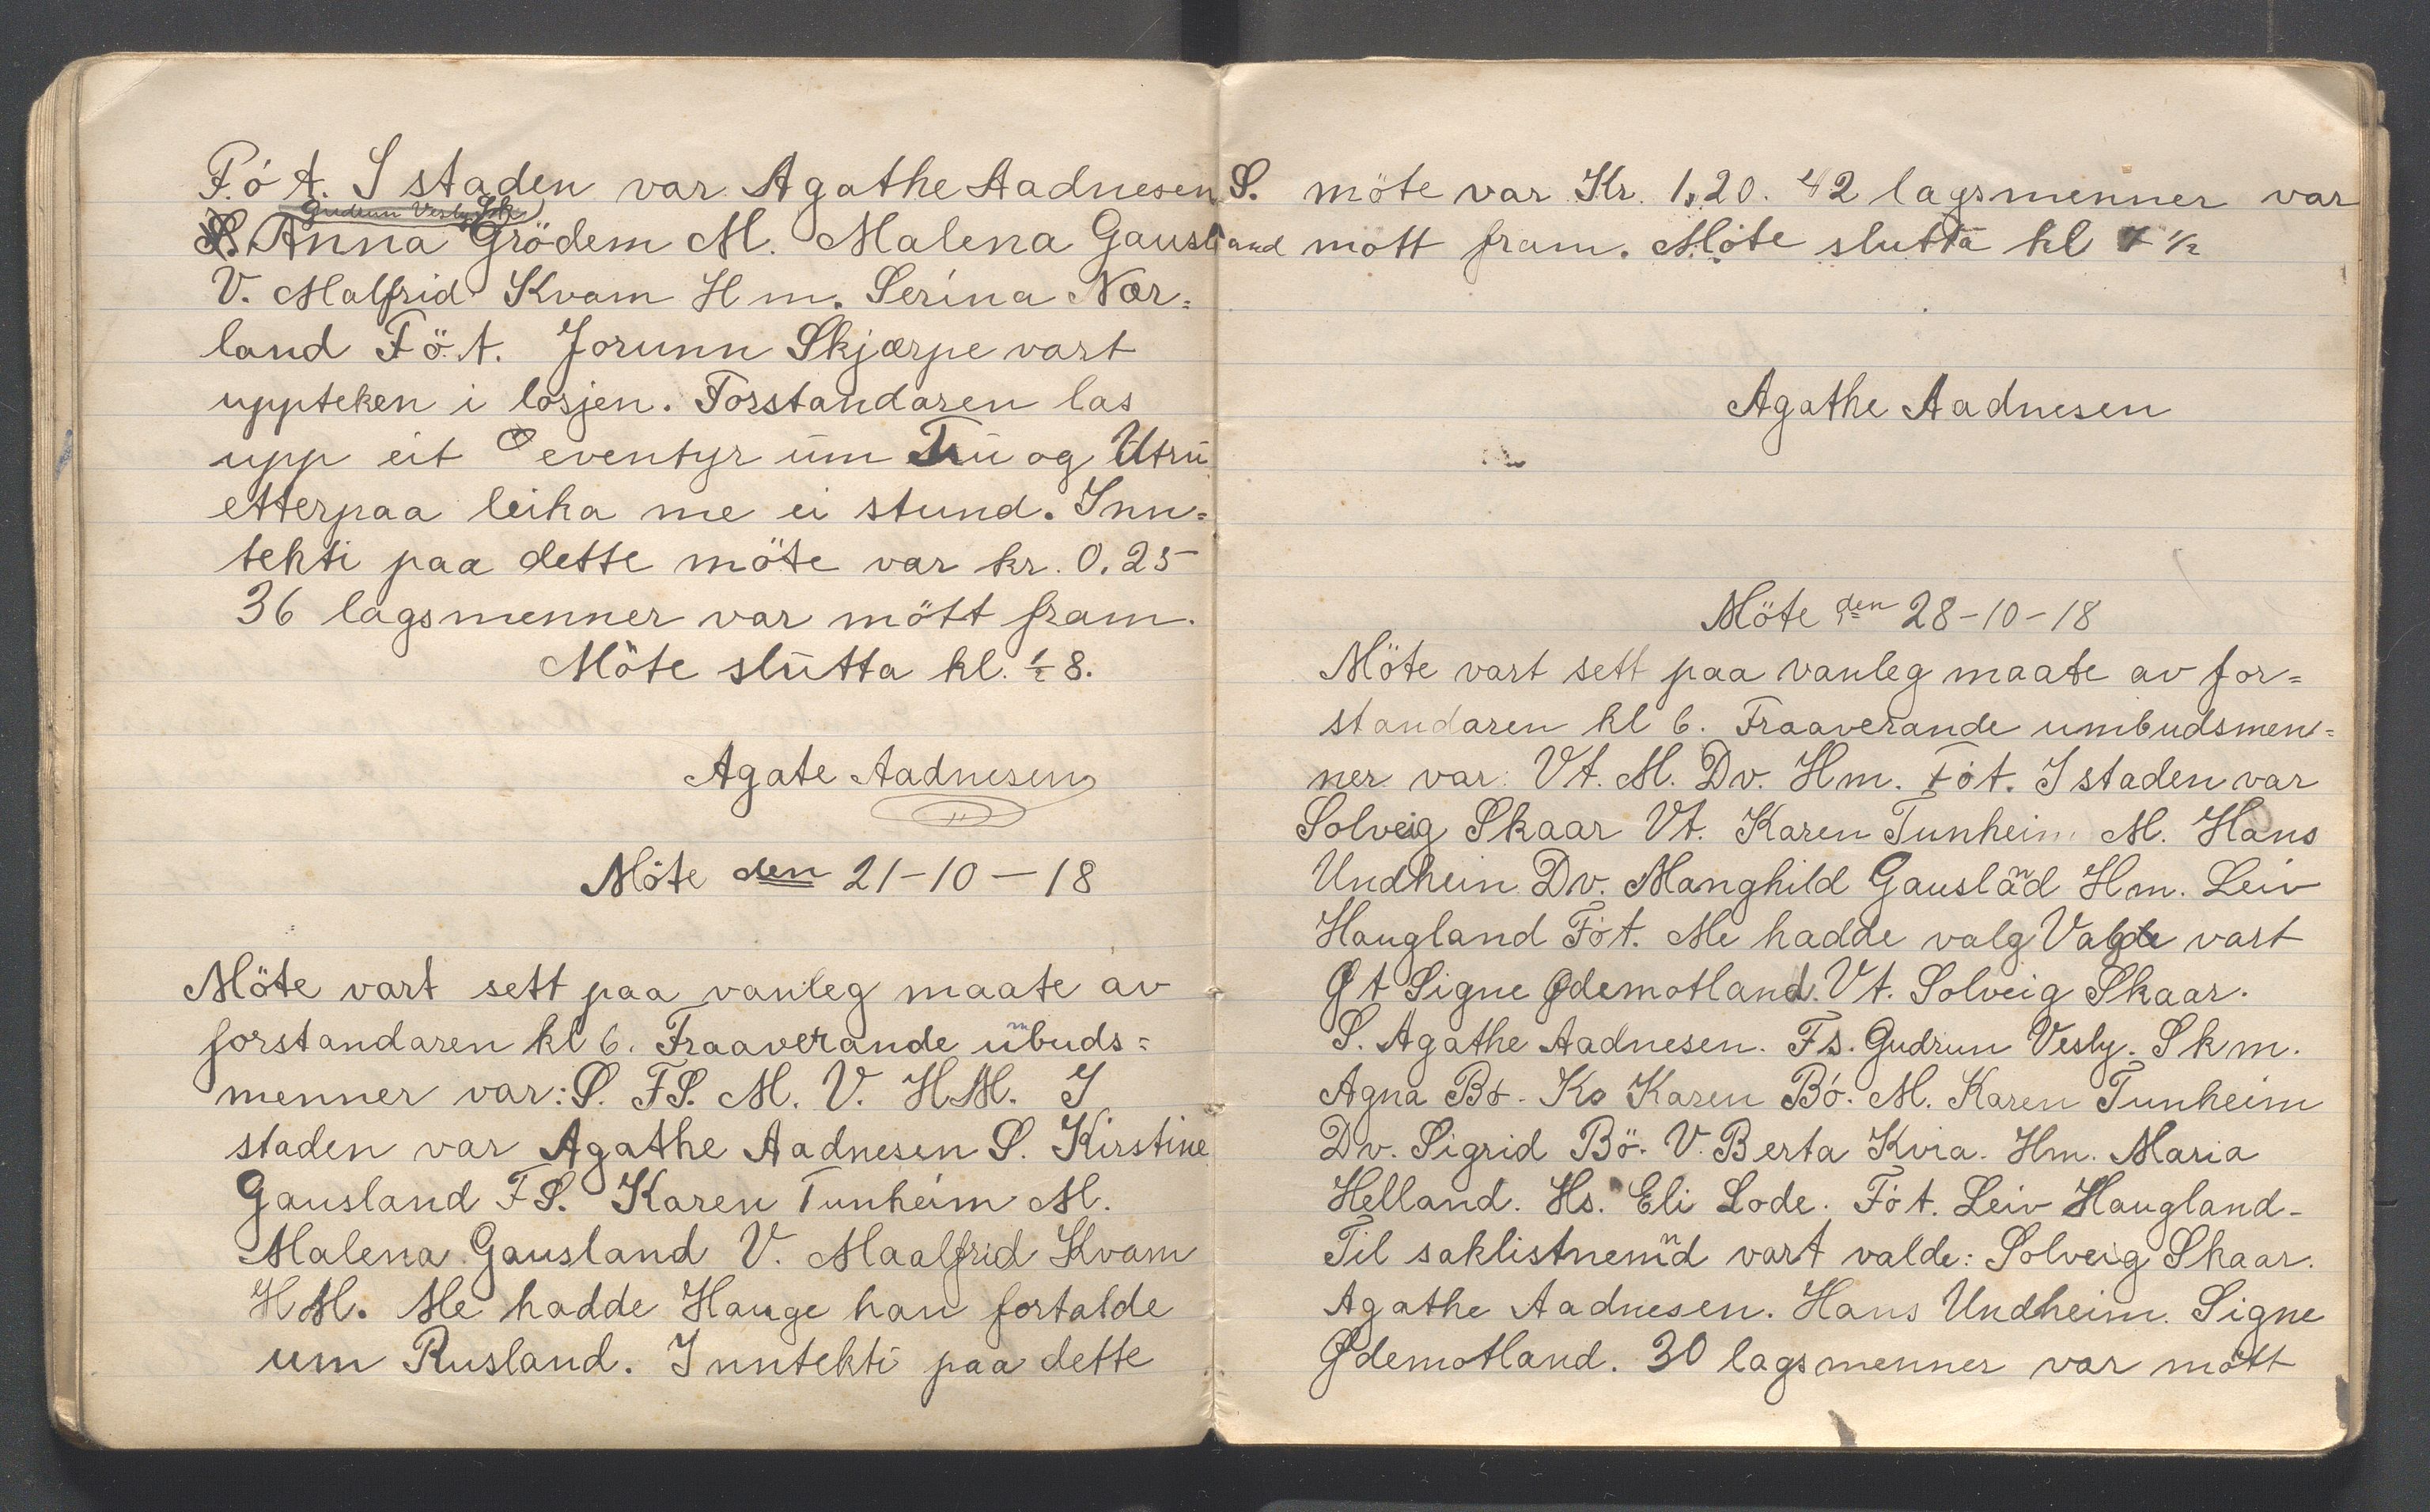 F.ö t. I staden var Agathe Aadnesen S.
Gudrun Vesly Sk
S. Anna Grödem M. Malena Gausland
V. Malfrid Kvam Hm. Serina Nær=
land Fö.t. Jorunn Skjærpe vart
uppteken i losjen. Forstandaren las
upp eit eventyr um Tru og Utru
etterpaa leika me ei stund. Inn=
tekti paa dette möte var kr. 0.25
36 lagsmenner var mött fram.
Möte slutta kl. ½ 8.
Agate Aadnesen
Möte den 21-10-18
Möte vart sett paa vanleg maate av
forstandaren kl 6. Fraaverande umbuds=
menner var: S. FS. M. V. HM. I
staden var Agathe Aadnesen S. Kirstine
Gausland FS. Karen Tunheim M.
Malena Gausland V. Maalfrid Kvam
HM. Me hadde Hauge han fortalde
um Rusland. Inntekti paa dette
möte var Kr. 1,20. 42 lagsmenner var
mött fram. Möte slutta kl ½
Agathe Aadnesen
Möte den 28-10-18
Möte vart sett paa vanleg maate av for=
standaren kl 6. Fraaverande umbudsmen=
ner var: Vt. M. Dv. Hm. Föt. I staden var
Solveig Skaar Vt. Karen Tunheim M. Hans
Undhein Dv. Manghild Gausland Hm. Leiv
Haugland Föt. Me hadde valg Valgde vart
Øt Signe Ødemotland. Vt. Solveig Skaar.
S. Agathe Aadnesen. Fs. Gudrun Vesly. Skm.
Agna Bö. Ks Karen Bö. M. Karen Tunheim
Dv. Sigrid Bö. V. Berta Kvia. Hm. Maria
Helland. Hs. Eli Lode. Föt. Leiv Haugland-
Til saklistnemnd vart valde: Solveig Skaar.
Agathe Aadnesen. Hans Undheim. Signe
Ødemotland. 30 lagsmenner var mött